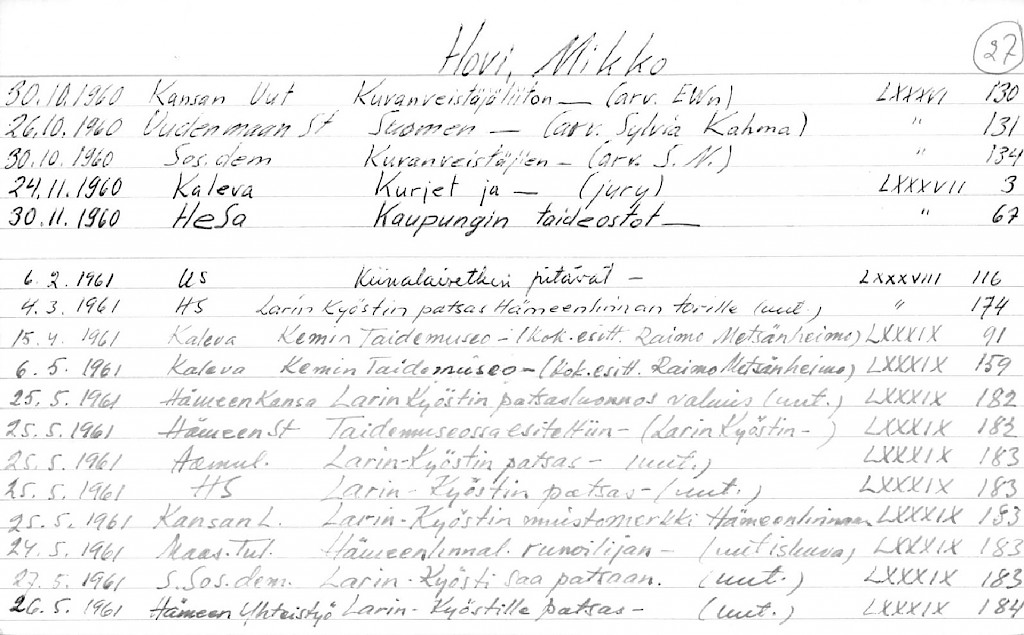 Hovi, Mikko 27
30.10.1960 Kansan Uut Kuvanveistäjäliiton — (arv. EWn) LXXXVI 130
26.10.1960 Uudenmaan St Suomen — (arv. Sylvia Kahma) " 131
30.10.1960 Sos.dem Kuvanveistäjien — (arv. S.N.) " 134
24.11.1960 Kaleva Kurjet ja — (jury) LXXXVII 3
30.11.1960 HeSa Kaupungin taideostot — " 67
6.2.1961 US pitävät — LXXXVIII 116
4.3.1961 HS Larin Kyöstin patsas Hämeenlinnan torille (uut.) " 174
15.4.1961 Kaleva Kemin Taidemuseo — (kok.esitt. Raimo Metsänheimo) LXXXIX 91
6.5.1961 Kaleva Kemin Taidemuseo — (kok.esitt. Raimo Metsänheimo) LXXXIX 159
25.5.1961 Hämeen Kansa Larin Kyöstin patsasluonnos valmis (uut.) LXXXIX 182
25.5.1961 Hämeen St Taidemuseossa esiteltiin — (Larin Kyöstin —) LXXXIX 182
25.5.1961 Aamul. Larin-Kyöstin patsas — (uut.) LXXXIX 183
25.5.1961 HS Larin-Kyöstin patsas — (uut.) LXXXIX 183
25.5.1961 Kansan L. Larin-Kyöstin muistomerkki Hämeenlinnaan LXXXIX 183
24.5.1961 Maas.Tul. Hämeenlinnal. runoilijan — (uutiskuva) LXXXIX 183
27.5.1961 S.Sos.dem. Larin-Kyösti saa patsaan. (uut.) LXXXIX 183
26.5.1961 Hämeen Yhteistyö Larin-Kyöstille patsas — (uut.) LXXXIX 184